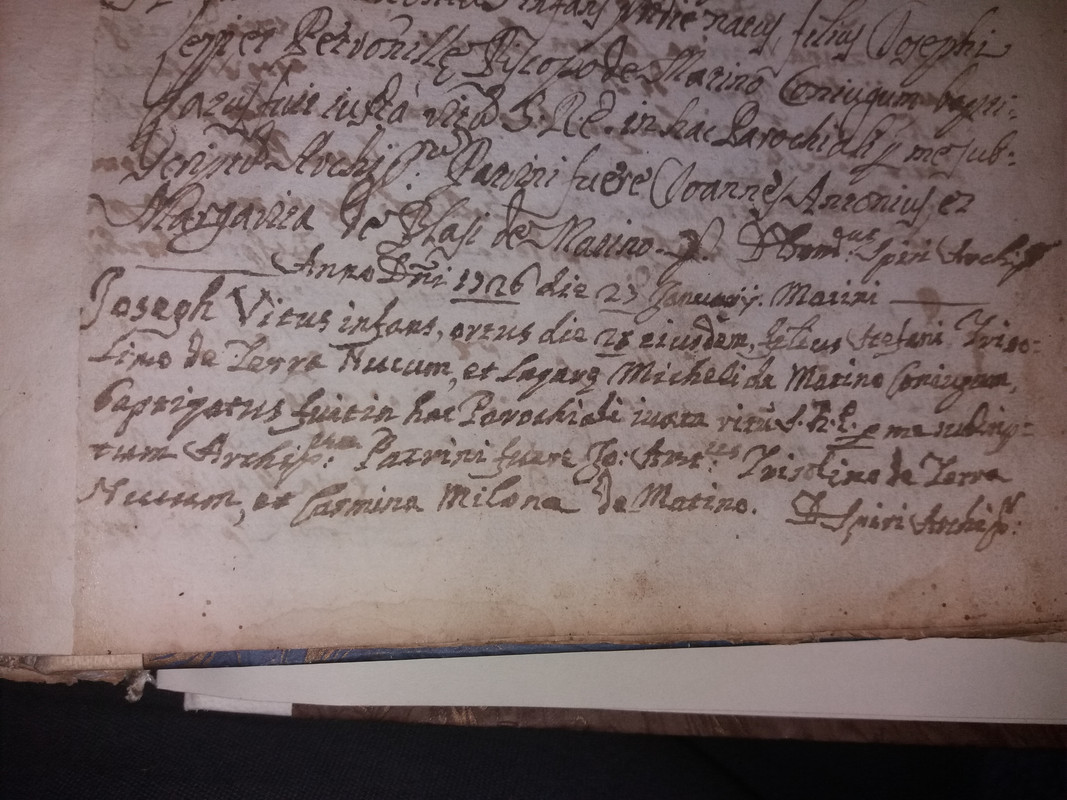 infans pridie natus filius Josephi
et Petronille Piscopo de Matino Coniugum bapti:
zatus fuit iuxta ritu S. R. E. in hac Parochiali p me sub:
scripto Archip. Patrini fuere Joannes Antonius et
Margarita de Blasi de Matino. D. Spiri Archip
Anno Dñi 1726 die 29 Januarij. Matini
Joseph Vitus infans, ortus die 28 eiusdem, filius Stefani Triso:
lino de Terra Nucum, et Lazare Micheli da Matino Coniugum,
baptizatus fuit in hac Parochiali iuxta ritu S. R. E. p me subscrip:
tum Archip: Patrini fuere Jo: Ant: Trisolino da Terra
Nucum, et Carmina Milona da Matino. D Spiri Archip: